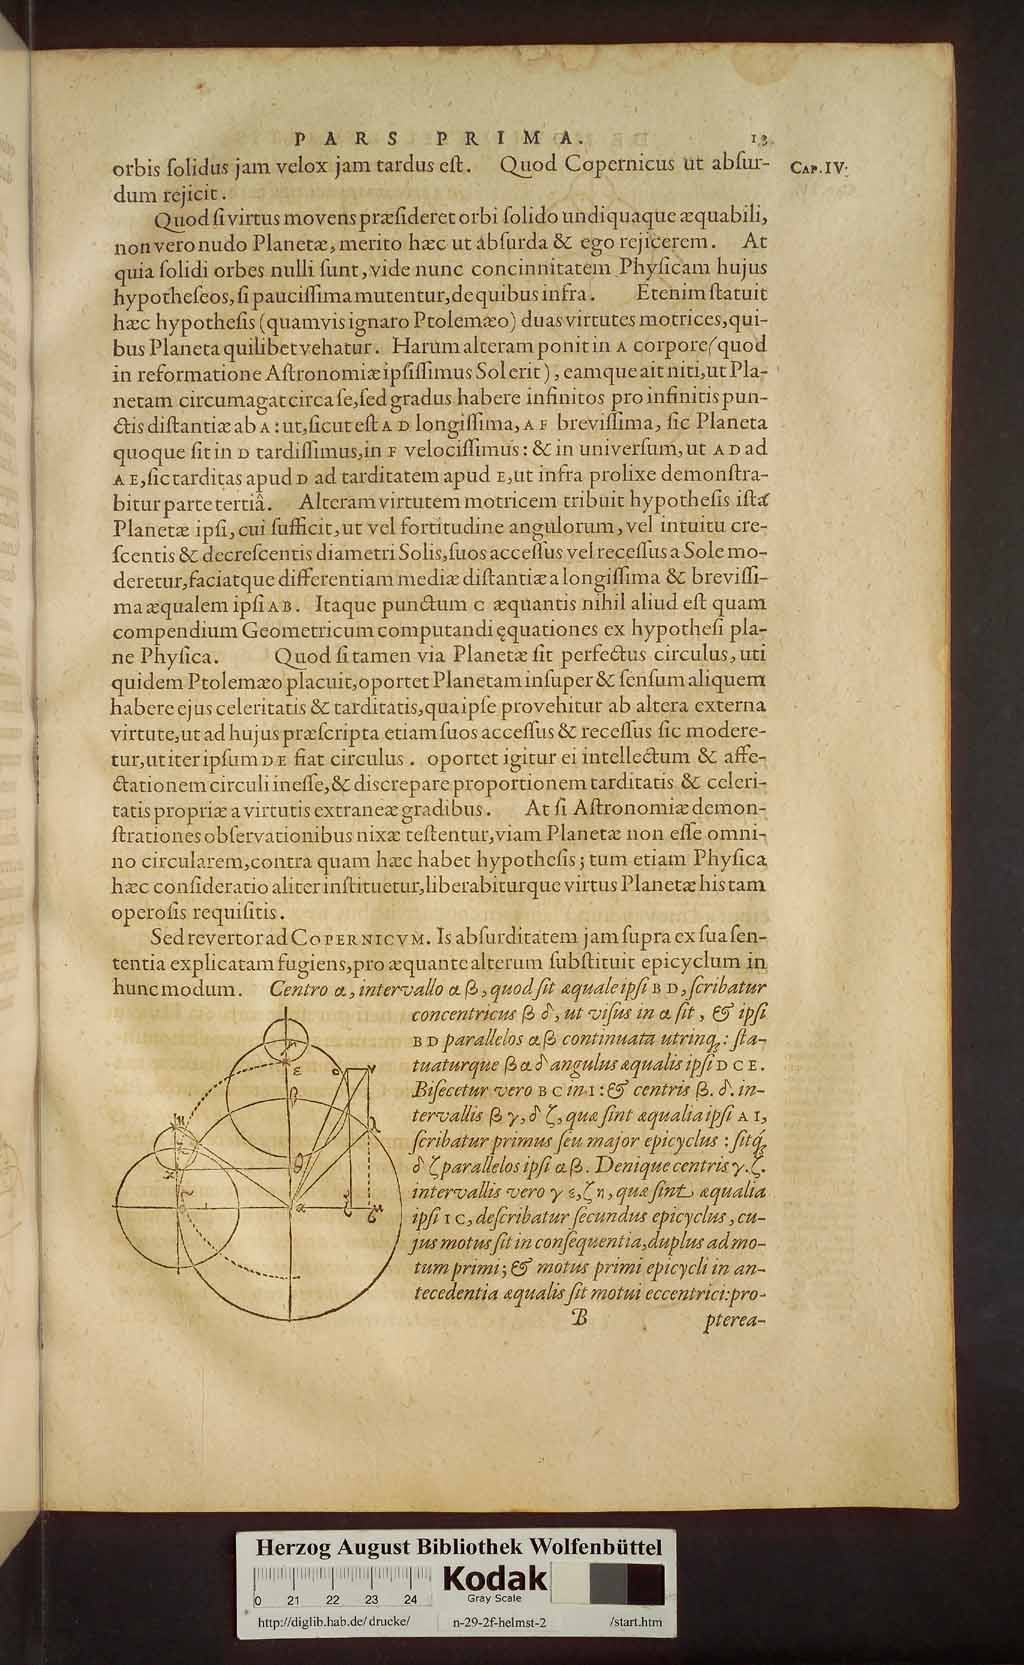 PARS PRIMA. 13
orbis ſolidus jam velox jam tardus eſt. Quod Copernicus ut abſur-
CAP. IV.
dum rejicit.
Quod ſi virtus movens præſideret orbi ſolido undiquaque æquabili,
non vero nudo Planetæ, merito hæc ut abſurda & ego rejicerem. At
quia ſolidi orbes nulli ſunt, vide nunc concinnitatem Phyſicam hujus
hypotheſeos, ſi pauciſſima mutentur, de quibus infra. Etenim ſtatuit
hæc hypotheſis (quamvis ignaro Ptolemæo) duas virtutes motrices, qui-
bus Planeta quilibet vehatur. Harum alteram ponit in A corpore (quod
in reformatione Aſtronomiæ ipſiſſimus Sol erit), eamque ait niti, ut Pla-
netam circumagat circa ſe, ſed gradus habere infinitos pro infinitis pun-
ctis diſtantiæ ab A: ut, ſicut eſt A D longiſſima, A F breviſſima, ſic Planeta
quoque ſit in D tardiſſimus, in F velociſſimus: & in univerſum, ut A D ad
A E, ſic tarditas apud D ad tarditatem apud E, ut infra prolixe demonſtra-
bitur parte tertiâ. Alteram virtutem motricem tribuit hypotheſis iſta
Planetæ ipſi, cui ſufficit, ut vel fortitudine angulorum, vel intuitu cre-
ſcentis & decreſcentis diametri Solis, ſuos acceſſus vel receſſus a Sole mo-
deretur, faciatque differentiam mediæ diſtantiæ a longiſſima & breviſſi-
ma æqualem ipſi A B. Itaque punctum C æquantis nihil aliud eſt quam
compendium Geometricum computandi ęquationes ex hypotheſi pla-
ne Phyſica. Quod ſi tamen via Planetæ ſit perfectus circulus, uti
quidem Ptolemæo placuit, oportet Planetam inſuper & ſenſum aliquem
habere ejus celeritatis & tarditatis, qua ipſe provehitur ab altera externa
virtute, ut ad hujus præſcripta etiam ſuos acceſſus & receſſus ſic modere-
tur, ut iter ipſum D E fiat circulus. oportet igitur ei intellectum & affe-
ctationem circuli ineſſe, & diſcrepare proportionem tarditatis & celeri-
tatis propriæ a virtutis extraneæ gradibus. At ſi Aſtronomiæ demon-
ſtrationes obſervationibus nixæ teſtentur, viam Planetæ non eſſe omni-
no circularem, contra quam hæc habet hypotheſis; tum etiam Phyſica
hæc conſideratio aliter inſtituetur, liberabiturque virtus Planetæ his tam
operoſis requiſitis.
Sed revertor ad COPERNICVM. Is abſurditatem jam ſupra ex ſua ſen-
tentia explicatam fugiens, pro æquante alterum ſubſtituit epicyclum in
hunc modum. Centro α, intervallo α β, quod ſit æquale ipſi B D, ſcribatur
concentricus β δ, ut viſus in α ſit, & ipſi
B D parallelos α β continuata utrinq;: ſta-
tuaturque β α δ angulus æqualis ipſi D C E.
Biſecetur vero B C in I: & centris β. δ. in-
tervallis β γ, δ ζ, quæ ſint æqualia ipſi A I,
ſcribatur primus ſeu major epicyclus: ſitq́;
δ ζ parallelos ipſi α β. Denique centris γ. ζ.
intervallis vero γ ε, ζ η, quæ ſint æqualia
ipſi I C, deſcribatur ſecundus epicyclus, cu-
jus motus ſit in conſequentia, duplus ad mo-
tum primi; & motus primi epicycli in an-
tecedentia æqualis ſit motui eccentrici: pro-
B pterea-
Herzog August Bibliothek Wolfenbüttel
0 21 22 23 24
Kodak
Gray Scale
http://diglib.hab.de/drucke/ n-29-2f-helmst-2 /start.htm